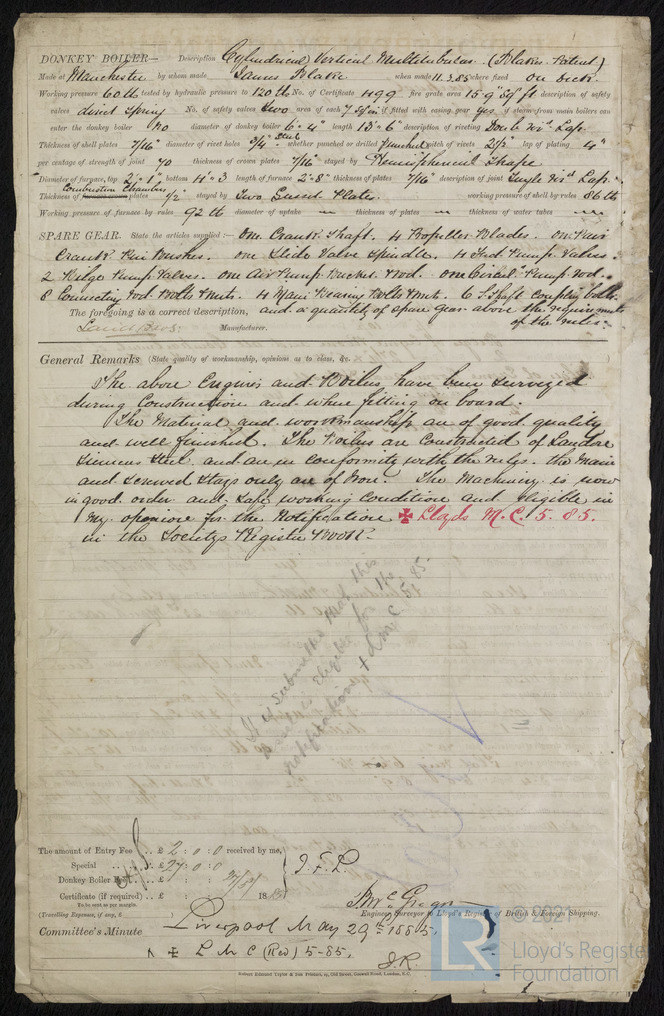 DONKEY BOILER— Description Cylindrical Vertical Multitubular (Blakes Patent)
Made at Manchester by whom made James Blake when made 11.3.85 where fixed on deck.
Working pressure 60 lb tested by hydraulic pressure to 120 lb No. of Certificate 1199 fire grate area 15.9 sq ft description of safety
valves direct spring No. of safety valves two area of each 7 sq in if fitted with easing gear yes if steam from main boilers can
enter the donkey boiler no diameter of donkey boiler 6'-4" length 13'-6" description of riveting Doub riv'd Lap.
Thickness of shell plates 7/16" diameter of rivet holes 3/4" whether punched or drilled punched pitch of rivets 2 1/2 lap of plating 4"
per centage of strength of joint 70 thickness of crown plates 7/16" stayed by Hemispherical shape
Diameter of furnace, top 2'-1" bottom 4'-3 length of furnace 2'-8" thickness of plates 7/16" description of joint Single riv'd Lap.
Combustion Chamber
Thickness of furnace crown plates 1/2" stayed by Two Gusset Plates working pressure of shell by rules 86 lb
Working pressure of furnace by rules 92 lb diameter of uptake — thickness of plates — thickness of water tubes —
SPARE GEAR. State the articles supplied:— one Crank Shaft. 4 Propeller Blades. one Pair
Crank Pin Bushes. one Slide Valve Spindle. 4 Feed Pump Valves.
2 Bilge Pump Valves. one Air Pump Bucket & Rod. one Circul. Pump Rod.
8 Connecting rod Bolts & nuts. 4 Main Bearing Bolts & nuts. 6 S. Shaft Coupling bolts.
The foregoing is a correct description, and a quantity of spare gear above the requirements
of the rules.
Laird Bros Manufacturer.
General Remarks (State quality of workmanship, opinions as to class, &c.
The above Engines and Boilers have been surveyed
during Construction and when fitting on board.
The Material and workmanship are of good quality
and well finished. The Boilers are Constructed of Landore
Siemens Steel and are in Conformity with the rules. the Main
and Screwed Stays only are of Iron. The Machinery is now
in good order and safe working Condition and eligible in
my opinion for the Notification ✠ Lloyds M.C. 5.85.
in the Societys Register Book
It is submitted that this
vessel is eligible for the
notification + LMC 5.85
The amount of Entry Fee .. £ 2 : 0 : 0 received by me,
Special .. .. £ 27 : 0 : 0
Donkey Boiler Fee .. £ : : J.F.L.
Certificate (if required) .. £ : : 18
To be sent as per margin.
(Travelling Expenses, if any, £ )
Engineer Surveyor to Lloyd's Register of British & Foreign Shipping.
Committee's Minute Liverpool May 29th 1885.
✠ L M C (Red) 5-85.
J.R.
Robert Edmund Taylor & Son Printers, 19, Old Street, Goswell Road, London, E.C.
© 2021
LR
Lloyd's Register
Foundation